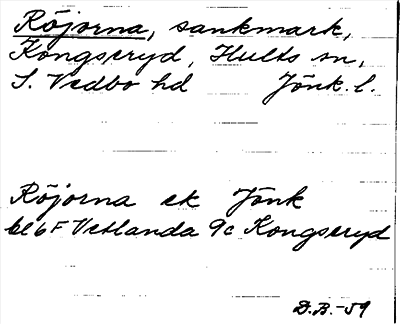 Röjorna, sankmark,
Kongseryd, Hults sn,
S. Vedbo hd Jönk. l.
Röjorna ek Jönk
bl 6F Vetlanda 9c Kongseryd
D.B.-59